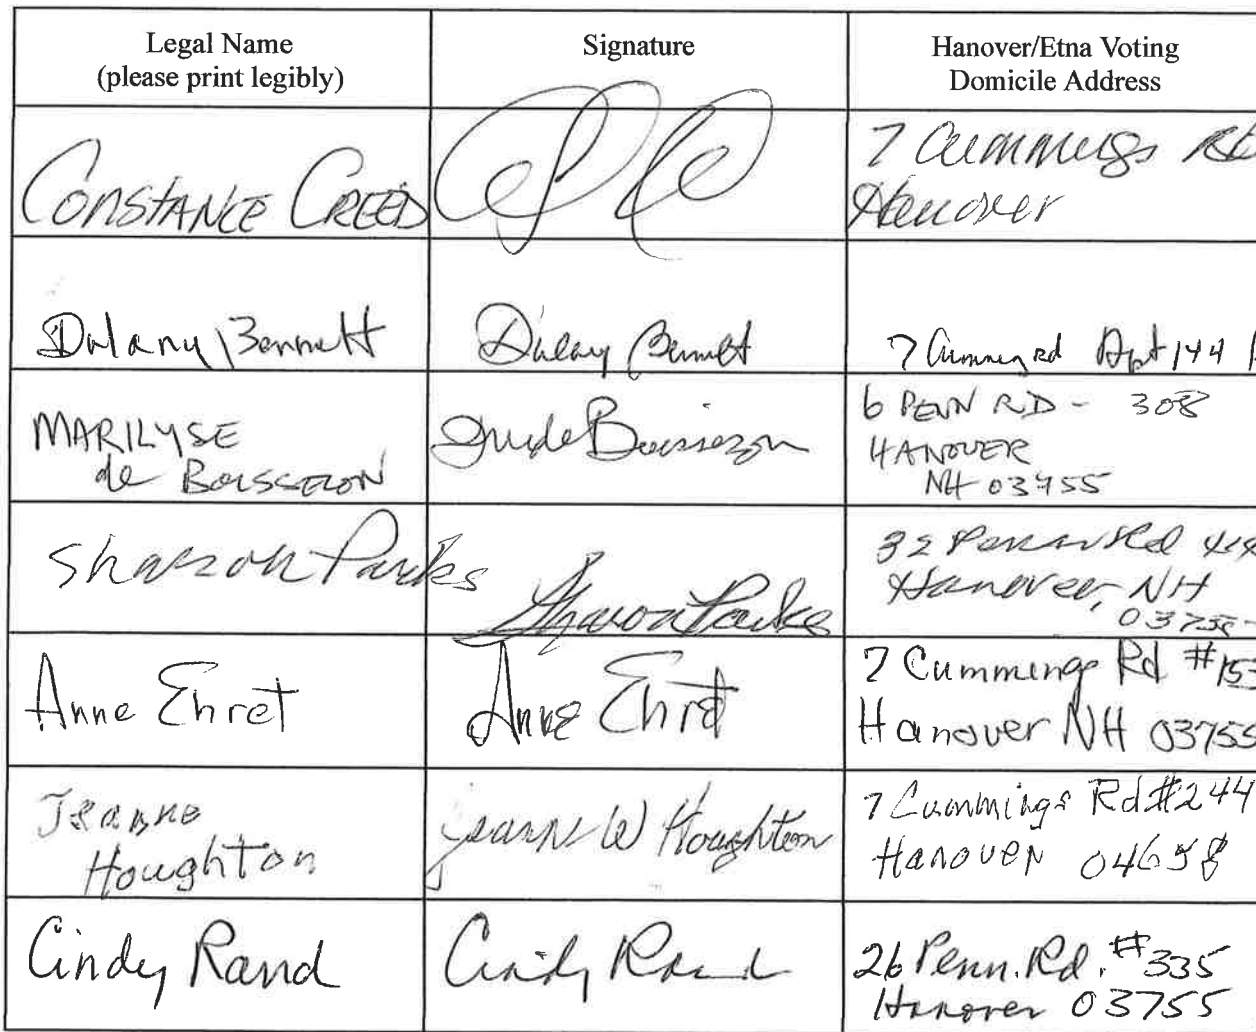 Legal Name
(please print legibly)
Signature
Hanover/Etna Voting
Domicile Address
CONSTANCE CREED
7 Cummings Rd
Hanover
Dulany Bennett
Dulany Bennett
7 Cummings rd Apt 144
MARILYSE
de BOISSEZON
de Boissezon
6 PENN RD - 308
HANOVER
NH 03755
Sharon Parks
Sharon Parks
32 Penn Rd
Hanover, NH
03755
Anne Ehret
Anne Ehret
7 Cummings Rd #153
Hanover NH 03755
Jeanne
Houghton
Jeanne W Houghton
7 Cummings Rd #244
Hanover 04658
Cindy Rand
Cindy Rand
26 Penn. Rd. #335
Hanover 03755